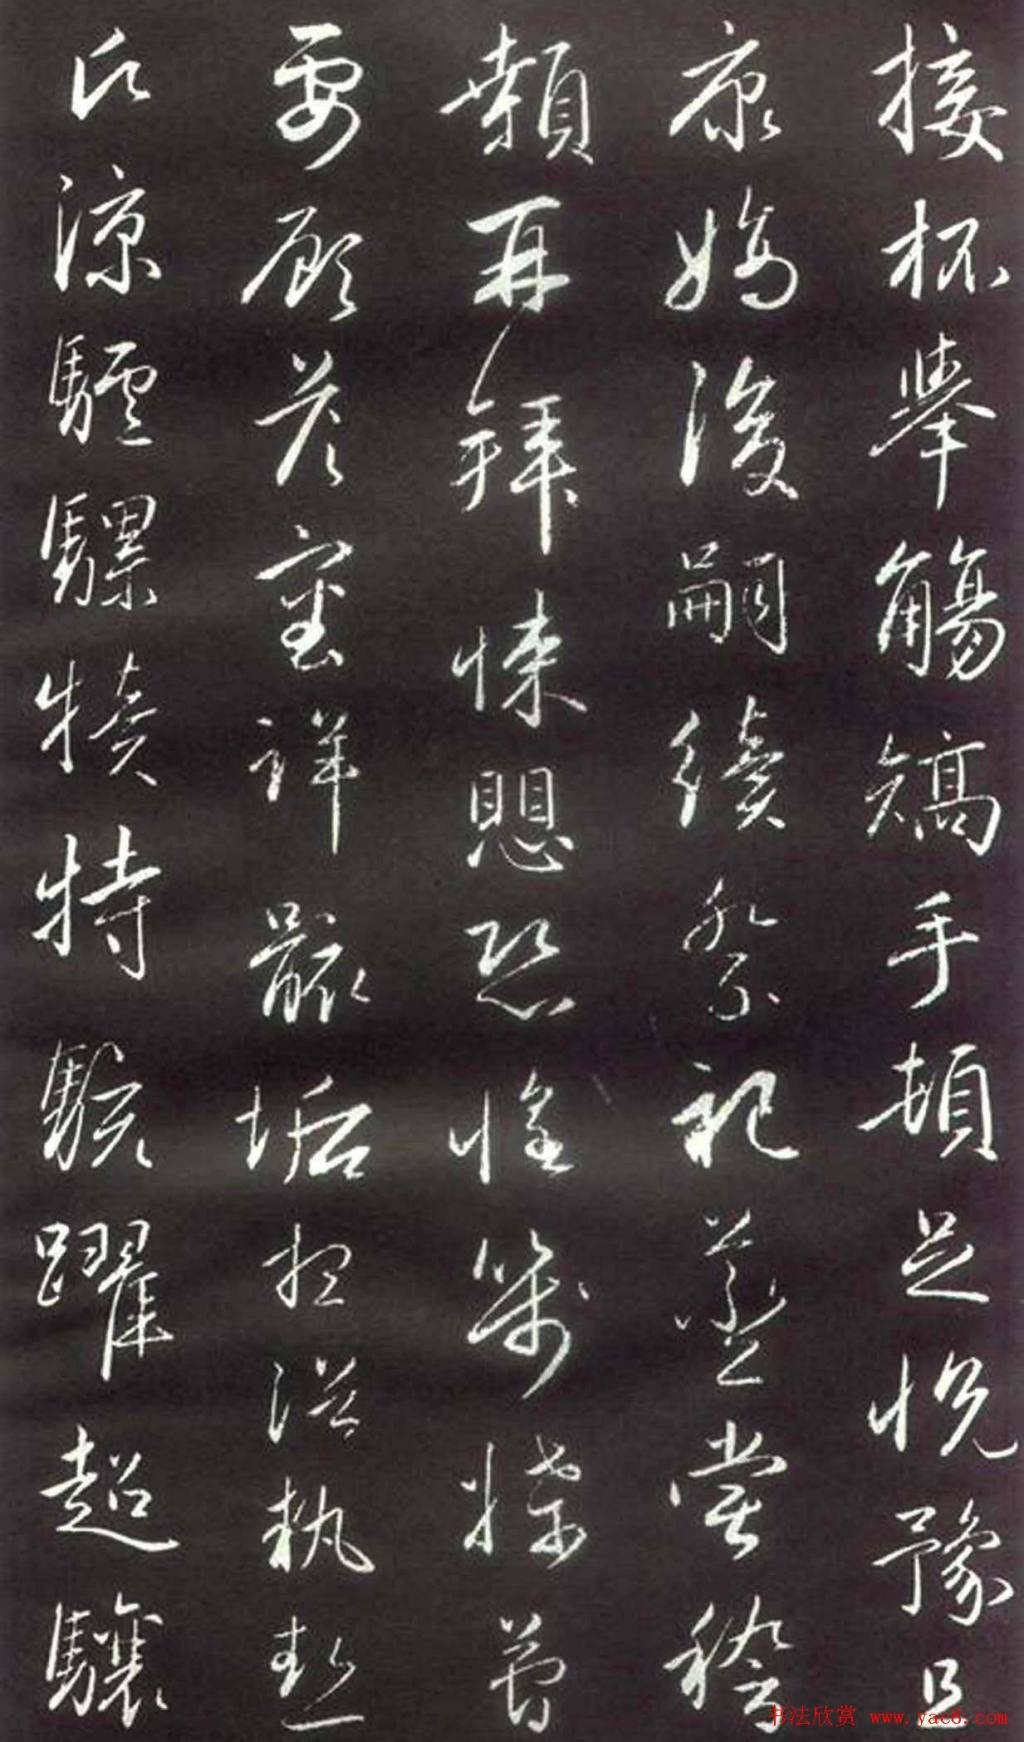 接杯舉觴矯手頓足悅豫且
康嫡後嗣續祭祀蒸嘗稽
顙再拜悚懼恐惶箋牒簡
要顧答審詳骸垢想浴執熱
願涼驢騾犢特駭躍超驤
书法欣赏 www.yac8.com